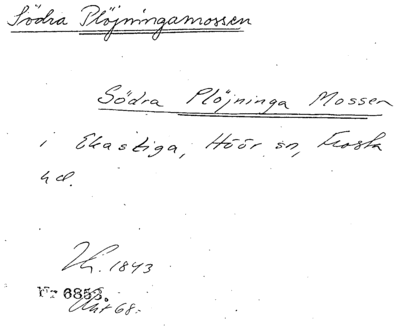 Södra Plöjningamossen
Södra Plöjninga Mossen
i Ekastiga, Höör sn, Frosta
hd.
1843
Nr 6853.
Akt 68.